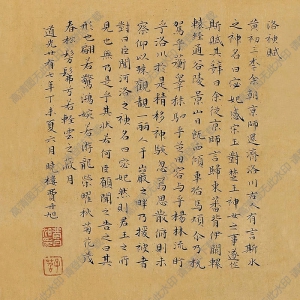 洛神賦
黃初三年余朝京師還濟洛川古人有言斯水
之神名曰宓妃感宋玉對楚王神女之事遂作
斯賦其辭曰余從京師言歸東藩背伊闕
轅經通谷陵景山日既西傾車殆馬煩尒乃税
駕乎蘅皋秣駟乎芝田容與乎楊林流眄
乎洛川於是精移神駭忽焉思散俯則未
察仰以殊觀覩一麗人于巖之畔乃援御者
對曰臣聞河洛之神名曰宓妃然則君王之所
見也無乃是乎其狀若何臣願聞之告之曰其
形也翩若驚鴻婉若游龍榮曜秋菊華茂
春松髣髴兮若輕雲之蔽月
道光廿有七年丁未夏六月